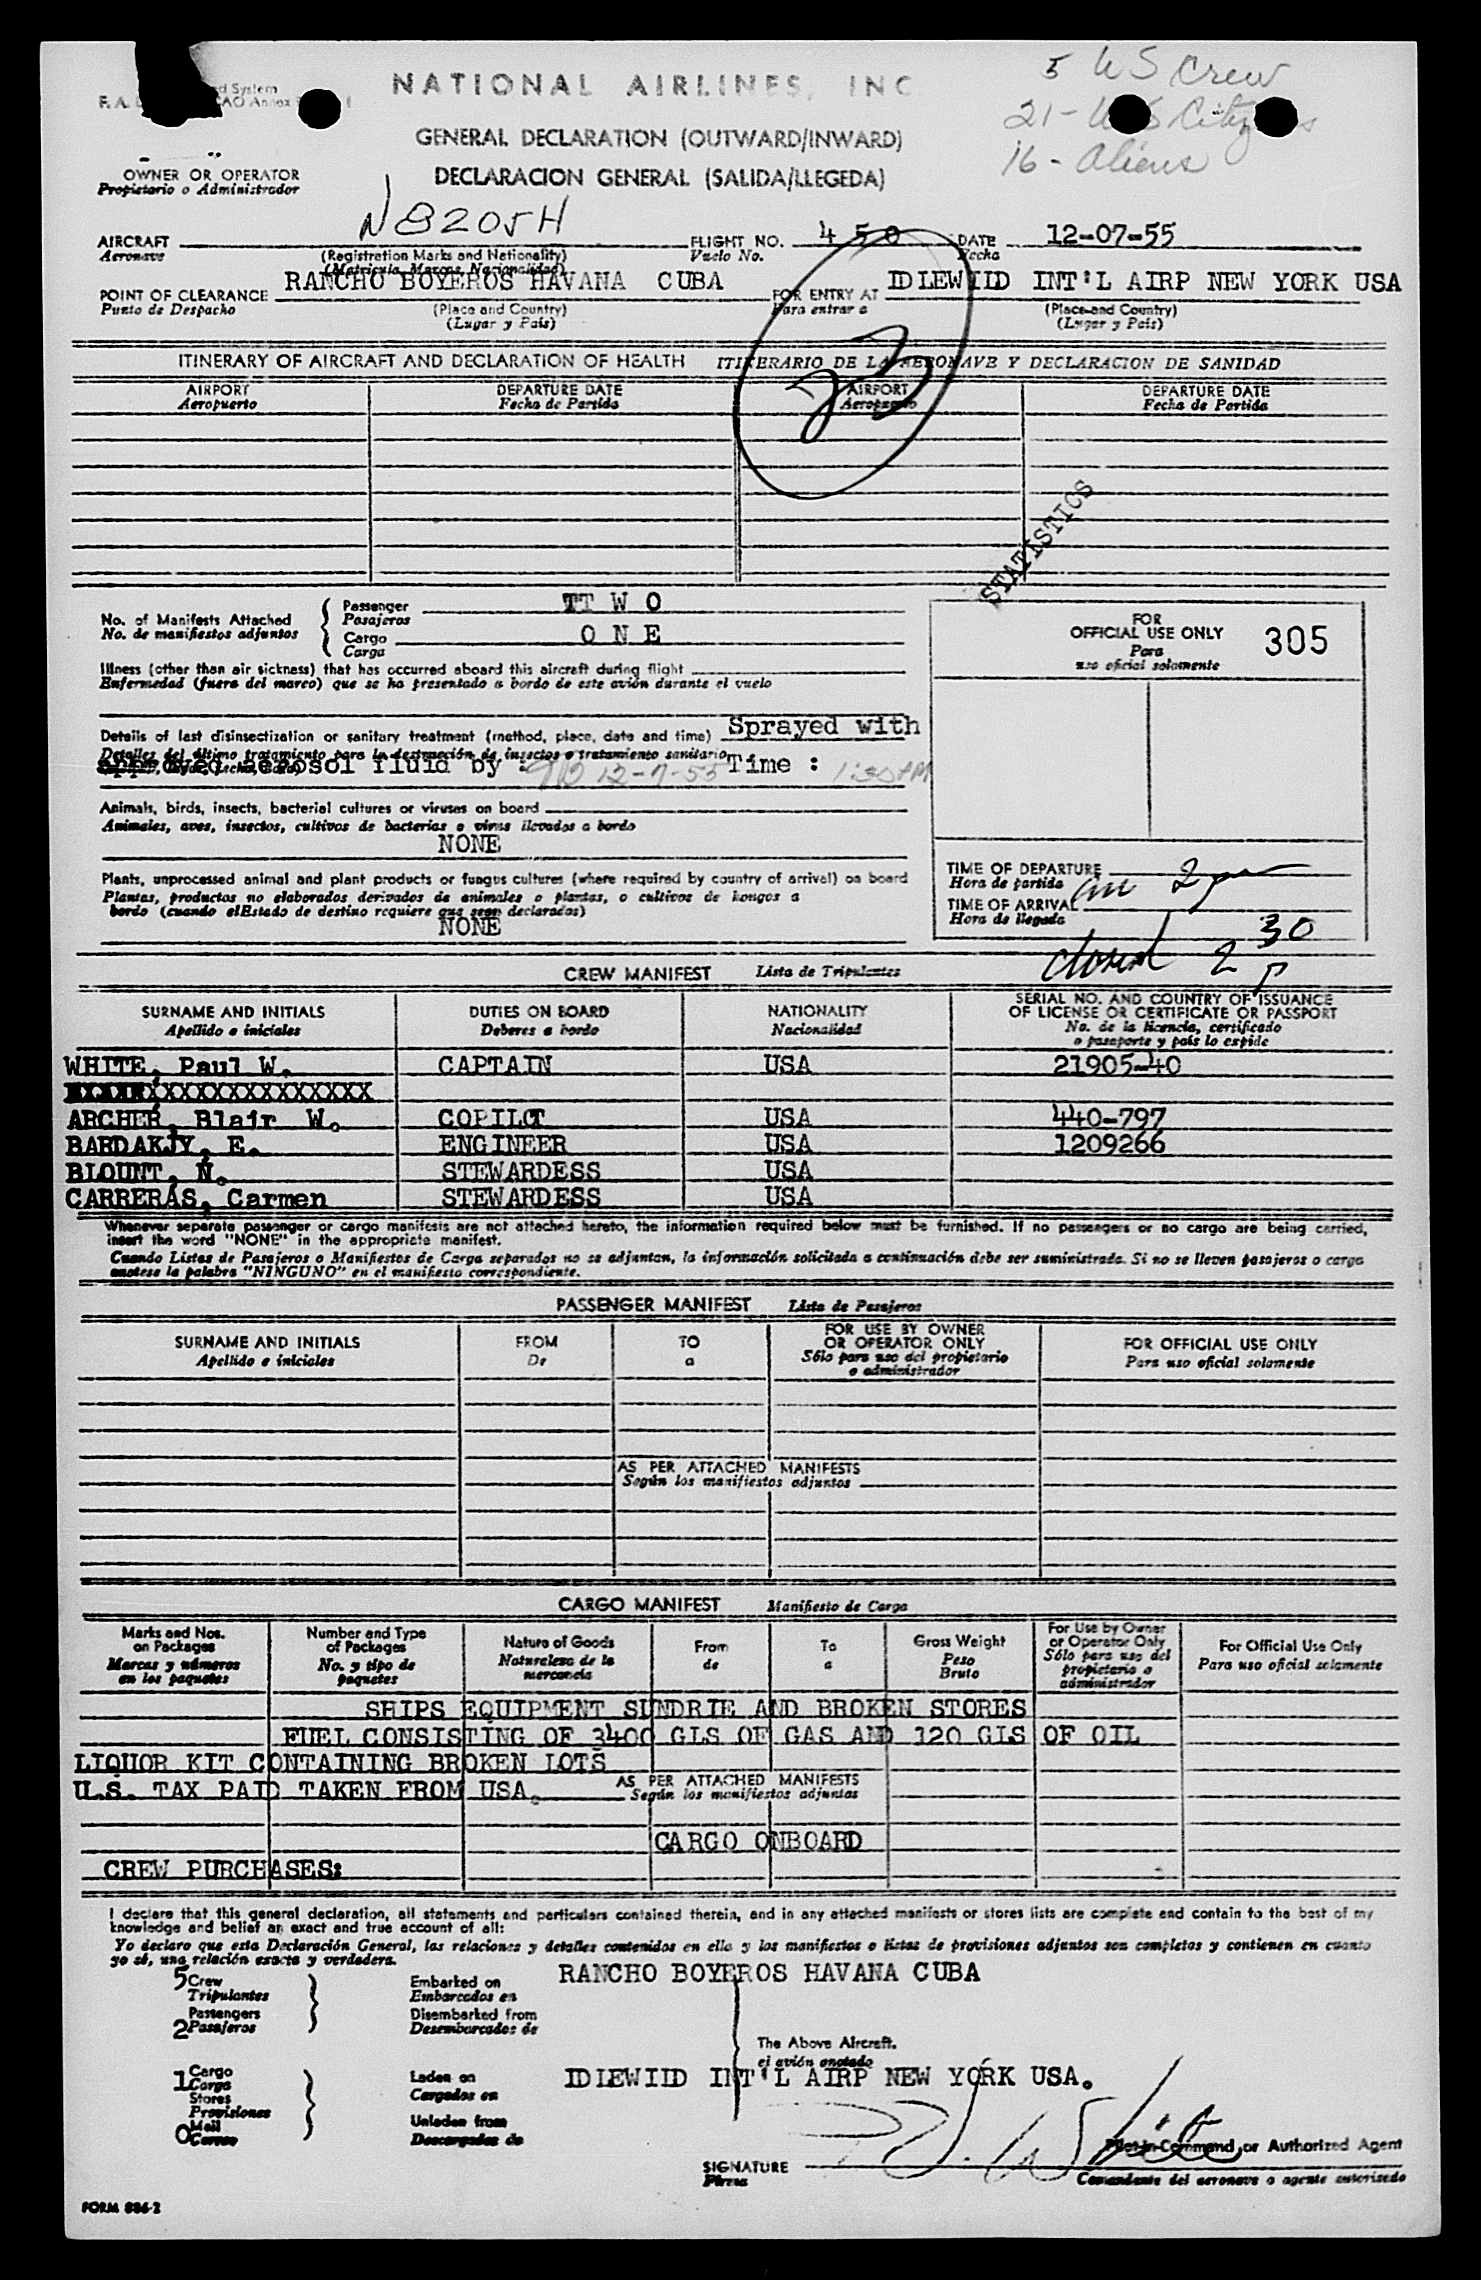 NATIONAL AIRLINES, INC
5 US Crew
21- US Citizens
16- Aliens
GENERAL DECLARATION (OUTWARD/INWARD)
DECLARACION GENERAL (SALIDA/LLEGEDA)
OWNER OR OPERATOR
Propietario o Administrador
AIRCRAFT N8205H FLIGHT NO. 450 DATE 12-07-55
Aeronave (Registration Marks and Nationality) Vuelo No. Fecha
(Matricula, Marcas, Nacionalidad)
POINT OF CLEARANCE RANCHO BOYEROS HAVANA CUBA FOR ENTRY AT IDLEWIID INT'L AIRP NEW YORK USA
Punto de Despacho (Place and Country) Para entrar a (Place and Country)
(Lugar y Pais) (Lugar y Pais)
23
ITINERARY OF AIRCRAFT AND DECLARATION OF HEALTH ITINERARIO DE LA AERONAVE Y DECLARACION DE SANIDAD
AIRPORT DEPARTURE DATE AIRPORT DEPARTURE DATE
Aeropuerto Fecha de Partida Aeropuerto Fecha de Partida
STATISTICS
No. of Manifests Attached Passenger TT W O
No. de manifiestos adjuntos Pasajeros
Cargo O N E
Carga
FOR
OFFICIAL USE ONLY 305
Para
uso oficial solamente
Illness (other than air sickness) that has occurred aboard this aircraft during flight
Enfermedad (fuera del mareo) que se ha presentado a bordo de este avión durante el vuelo
Details of last disinsectization or sanitary treatment (method, place, date and time) Sprayed with
Detalles del último tratamiento para la destrucción de insectos o tratamiento sanitario
approved aerosol fluid by : 12-7-55 Time : 1:30 PM
Animals, birds, insects, bacterial cultures or viruses on board
Animales, aves, insectos, cultivos de bacterias o virus llevados a bordo
NONE
Plants, unprocessed animal and plant products or fungus cultures (where required by country of arrival) on board
Plantas, productos no elaborados derivados de animales o plantas, o cultivos de hongos a
bordo (cuando elEstado de destino requiere que sean declarados)
NONE
TIME OF DEPARTURE
Hora de partida
TIME OF ARRIVAL
Hora de llegada
in 2 pm
closed 2 30 P
CREW MANIFEST Lista de Tripulantes
SURNAME AND INITIALS DUTIES ON BOARD NATIONALITY SERIAL NO. AND COUNTRY OF ISSUANCE
OF LICENSE OR CERTIFICATE OR PASSPORT
Apellido e iniciales Deberes a bordo Nacionalidad No. de la licencia, certificado
o pasaporte y país lo expide
WHITE, Paul W. CAPTAIN USA 21905-40
ARCHER, Blair W. COPILOT USA 440-797
BARDAKJY, E. ENGINEER USA 1209266
BLOUNT, N. STEWARDESS USA
CARRERAS, Carmen STEWARDESS USA
Whenever separate passenger or cargo manifests are not attached hereto, the information required below must be furnished. If no passengers or no cargo are being carried,
insert the word "NONE" in the appropriate manifest.
Cuando Listas de Pasajeros o Manifiestos de Carga separados no se adjuntan, la información solicitada a continuación debe ser suministrada. Si no se lleven pasajeros o carga
anotese la palabra "NINGUNO" en el manifiesto correspondiente.
PASSENGER MANIFEST Lista de Pasajeros
SURNAME AND INITIALS FROM TO FOR USE BY OWNER
OR OPERATOR ONLY FOR OFFICIAL USE ONLY
Apellido e iniciales De a Sólo para uso del propietario
o administrador Para uso oficial solamente
AS PER ATTACHED MANIFESTS
Según los manifiestos adjuntos
CARGO MANIFEST Manifiesto de Carga
Marks and Nos.
on Packages
Marcas y números
en los paquetes
Number and Type
of Packages
No. y tipo de
paquetes
Nature of Goods
Naturaleza de la
mercancia
From
de
To
a
Gross Weight
Peso
Bruto
For Use by Owner
or Operator Only
Sólo para uso del
propietario o
administrador
For Official Use Only
Para uso oficial solamente
SHIPS EQUIPMENT SUNDRIE AND BROKEN STORES
FUEL CONSISTING OF 3400 GLS OF GAS AND 120 GLS OF OIL
LIQUOR KIT CONTAINING BROKEN LOTS
U.S. TAX PAID TAKEN FROM USA.
AS PER ATTACHED MANIFESTS
Según los manifiestos adjuntos
CARGO ONBOARD
CREW PURCHASES:
I declare that this general declaration, all statements and particulars contained therein, and in any attached manifests or stores lists are complete and contain to the best of my
knowledge and belief an exact and true account of all:
Yo declaro que esta Declaración General, las relaciones y detalles contenidos en ella y los manifiestos o listas de provisiones adjuntos son completos y contienen en cuanto
yo sé, una relación exacta y verdadera.
5 Crew Embarked on RANCHO BOYEROS HAVANA CUBA
Tripulantes Embarcados en
Passengers Disembarked from
2 Pasajeros Desembarcados de
The Above Aircraft.
el avión anotado
1 Cargo Laden on IDIEWIID INT'L AIRP NEW YORK USA.
Carga Cargados en
Stores
Provisiones
0 Mail Unladen from
Correo Descargados de
P. W. White
Pilot-in-Command, or Authorized Agent
SIGNATURE
Firma Comandante del aeronave o agente autorizado
FORM 886-2